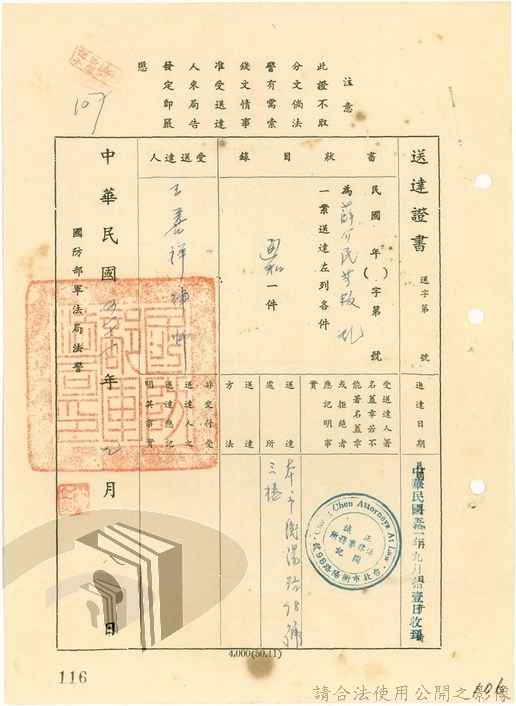 注意
此證不取
分文倘法
警有需索
錢文情事
准受送達
人來局告
發定卽嚴
懲
107
送達證書
送字第 號
書狀目錄
受送達人
民國 年( )字第 號
為薛介民等叛亂
一案送達左列各件
通知一件
王善祥律師
送達日期
中華民國五十二年九月拾壹日收到
受送達人署
名蓋章若不
能署名蓋章
或拒絕者
應記明事
實
送達處所
本市衡陽路98號
三樓
送達方法
非交付受
送達人之
送達應記
明其事實
Chen Attorneys At Law
正誠法律事務所
台北市衡陽路98號
中華民國 年 九月 日
國防部軍法局法警
4,000(50.11)
116
106
請合法使用公開之影像